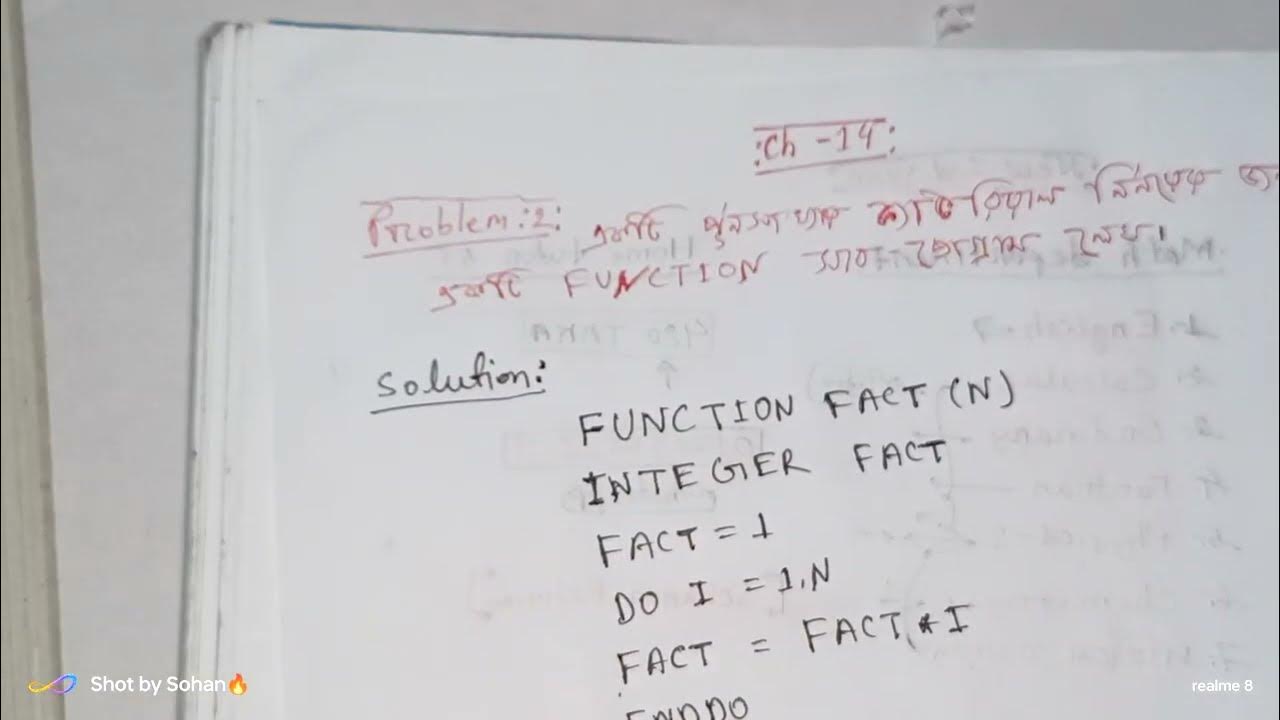 :Ch -14:
Problem:2: একটি পূনসংখ্যার ফ্যাক্টরিয়াল নির্নয়ের
একটি FUNCTION সাব প্রোগ্রাম লেখ।
Solution:
FUNCTION FACT (N)
INTEGER FACT
FACT = 1
DO I = 1,N
FACT = FACT * I
ENDDO
Shot by Sohan🔥
realme 8